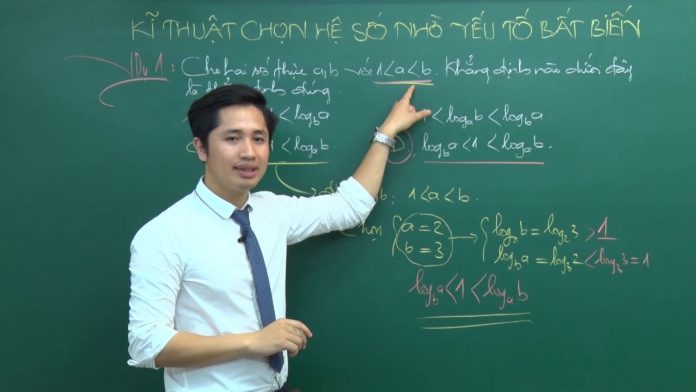 KĨ THUẬT CHỌN HỆ SỐ NHỜ YẾU TỐ BẤT BIẾN
VD 1: Cho hai số thực a,b với 1<a<b. Khẳng định nào dưới đây
là khẳng định đúng.
< log_b a
< log_a b < log_b a.
< log_a b
log_b a < 1 < log_a b.
b: 1<a<b.
Chọn { a = 2 → { log_a b = log_2 3 > 1
b = 3 log_b a = log_3 2 < log_3 3 = 1
log_b a < 1 < log_a b